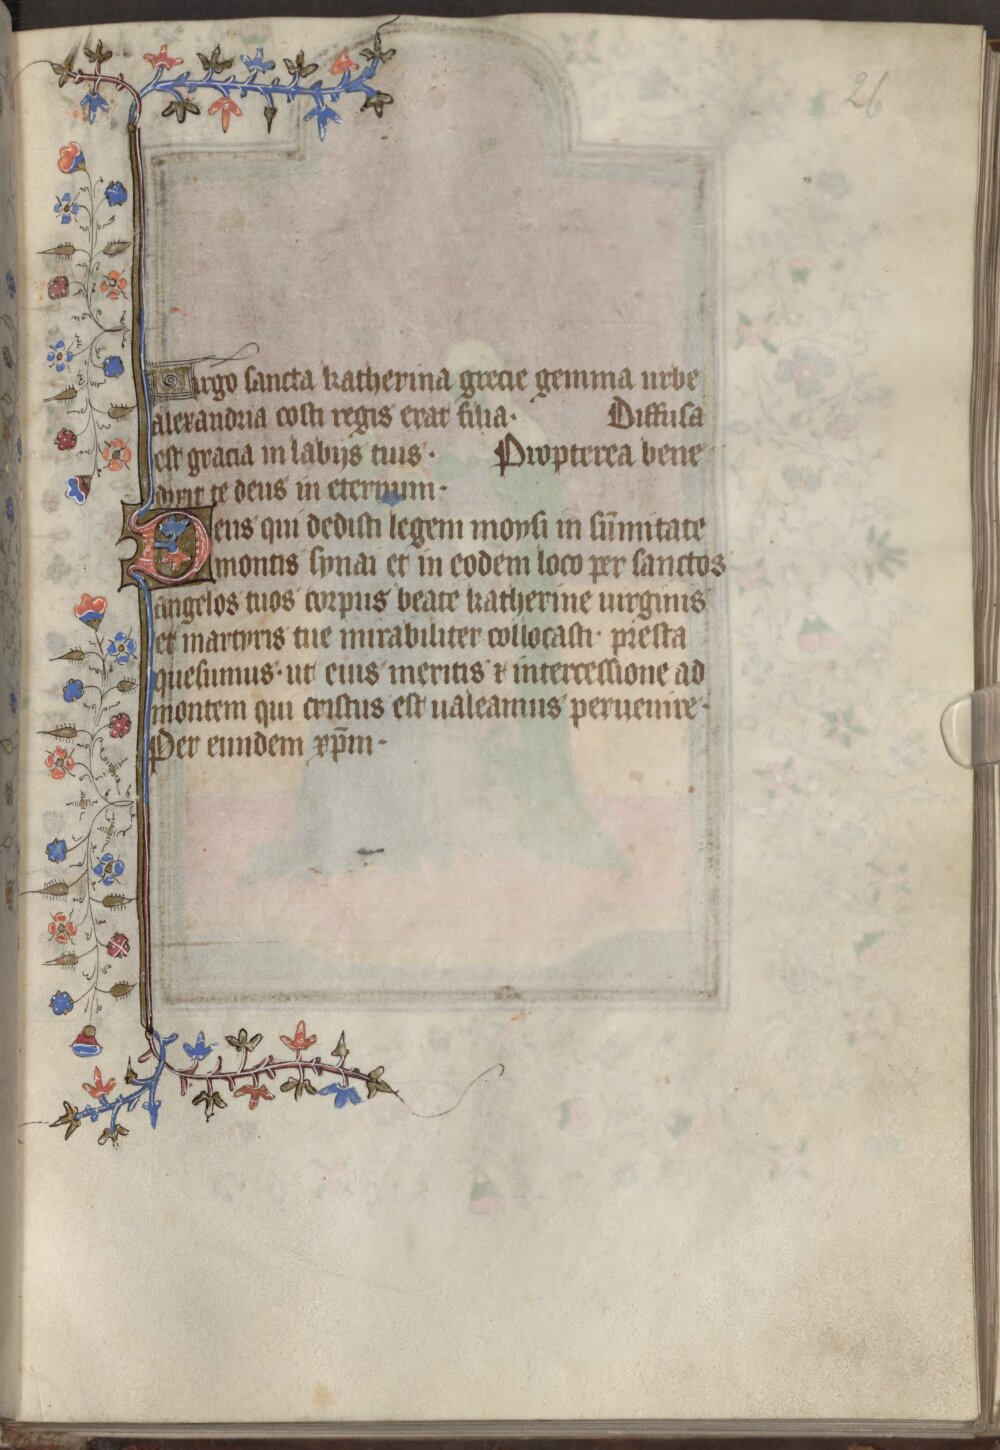 26
Virgo sancta katherina grecie gemma urbe
alexandria costi regis erat filia· Diffusa
est gracia in labijs tuis· Propterea bene
dixit te deus in eternum·
Deus qui dedisti legem moysi in sūmitate
montis synai et in eodem loco per sanctos
angelos tuos corpus beate katherine uirginis
et martyris tue mirabiliter collocasti· presta
quesumus· ut eius meritis ⁊ intercessione ad
montem qui cristus est ualeamus peruenire·
Per eundem xp̄m·